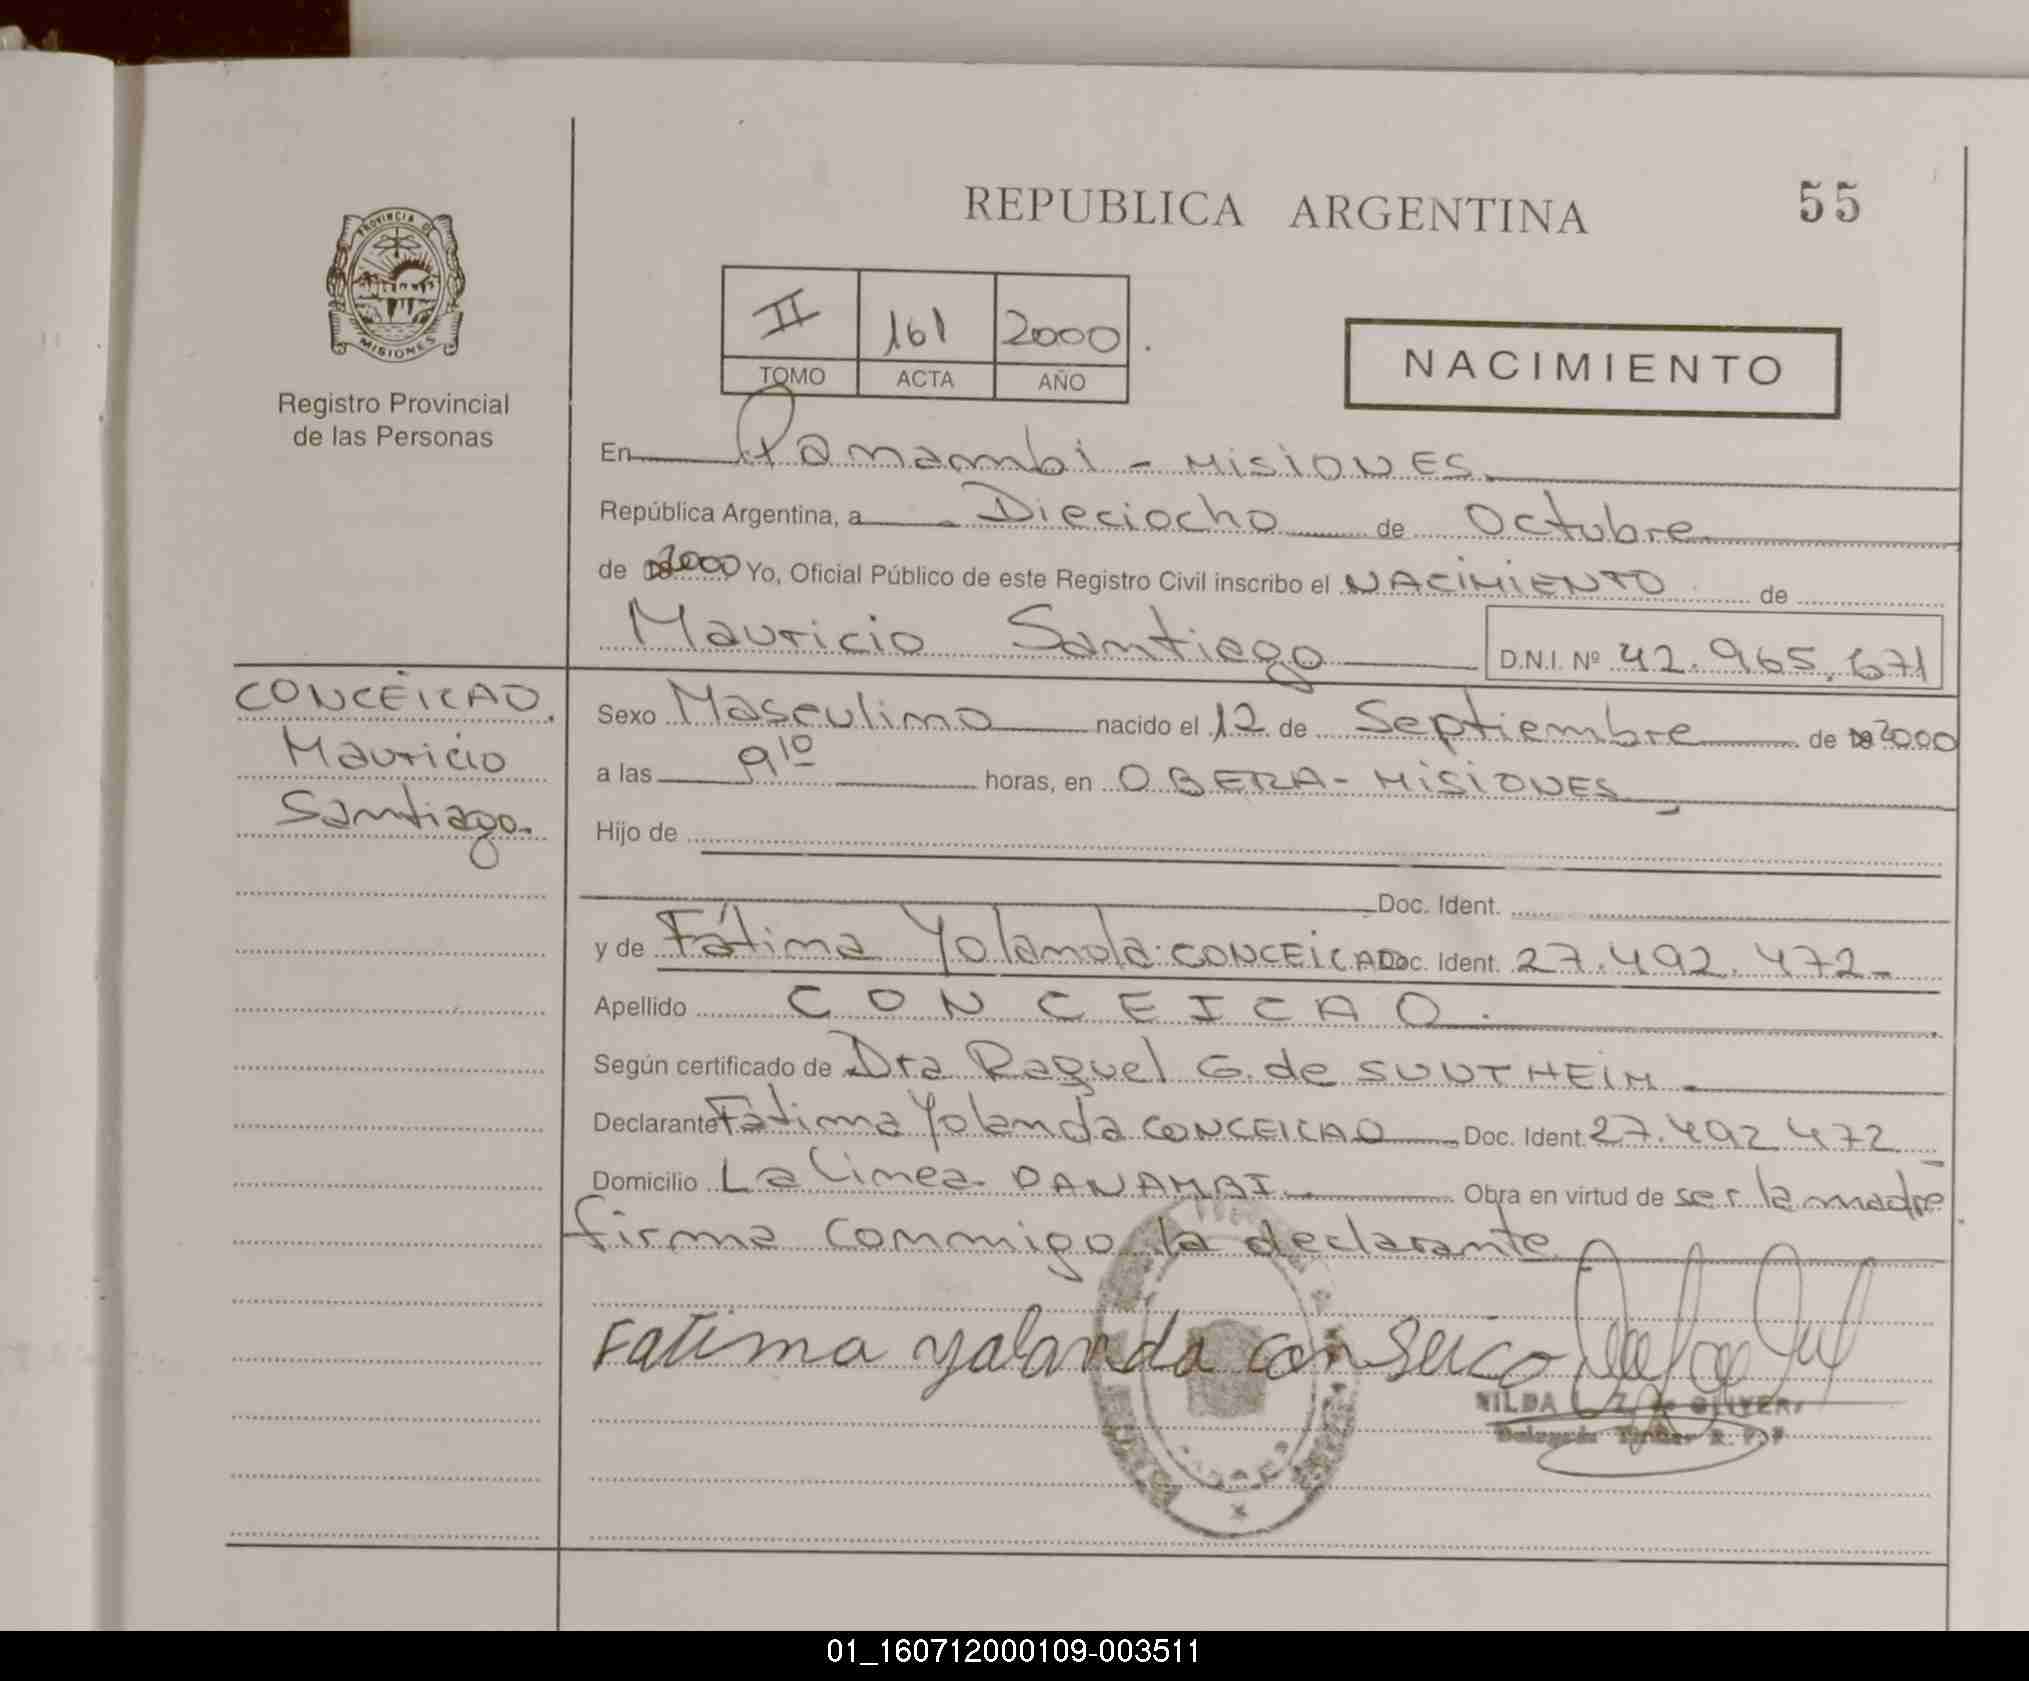 REPUBLICA ARGENTINA
55
PROVINCIA DE
MISIONES
Registro Provincial
de las Personas
II 161 2000
TOMO ACTA AÑO
NACIMIENTO
En Panambi - MISIONES
República Argentina, a Dieciocho de Octubre
de 2000 Yo, Oficial Público de este Registro Civil inscribo el NACIMIENTO de
Mauricio Santiago D.N.I. Nº 42.965.671
CONCEICAO
Mauricio
Santiago.
Sexo Masculino nacido el 12 de Septiembre de 2000
a las 9 10 horas, en OBERA - MISIONES
Hijo de
Doc. Ident.
y de Fátima Yolanda CONCEICAO Doc. Ident. 27.492.472-
Apellido CONCEICAO.
Según certificado de Dra Raquel G. de SUNTHEIM
Declarante Fátima Yolanda CONCEICAO Doc. Ident. 27.492 472
Domicilio La Linea - PANAMBI Obra en virtud de ser la madre
firma conmigo la declarante
Fatima yolanda conseico
NILDA Z. de OLIVERA
01_160712000109-003511